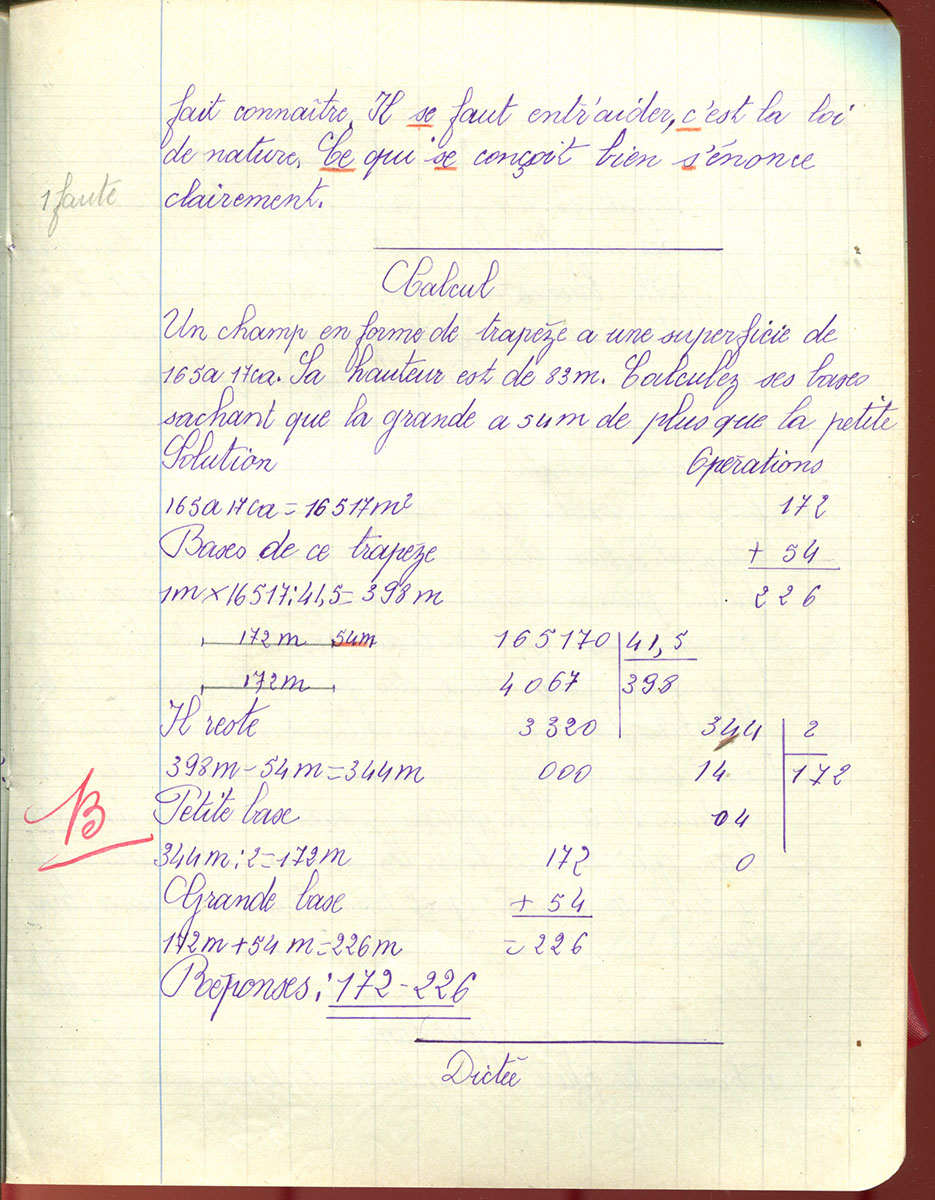 fait connaître. Il se faut entr'aider, c'est la loi
de nature. Ce qui se conçoit bien s'énonce
1 faute
clairement.
Calcul
Un champ en forme de trapèze a une superficie de
165a 17ca. Sa hauteur est de 83m. Calculez ses bases
sachant que la grande a 54m de plus que la petite
Solution Opérations
165a 17ca = 16517m² 172
Bases de ce trapèze + 54
1m × 16517 : 41,5 = 398m 226
172m 54m 165170 41,5
172m 4067 398
Il reste 3320 344 2
398m - 54m = 344m 000 14 172
B
Petite base 04
344m : 2 = 172m 172 0
Grande base + 54
172m + 54m = 226m = 226
Réponses : 172 - 226
Dictée